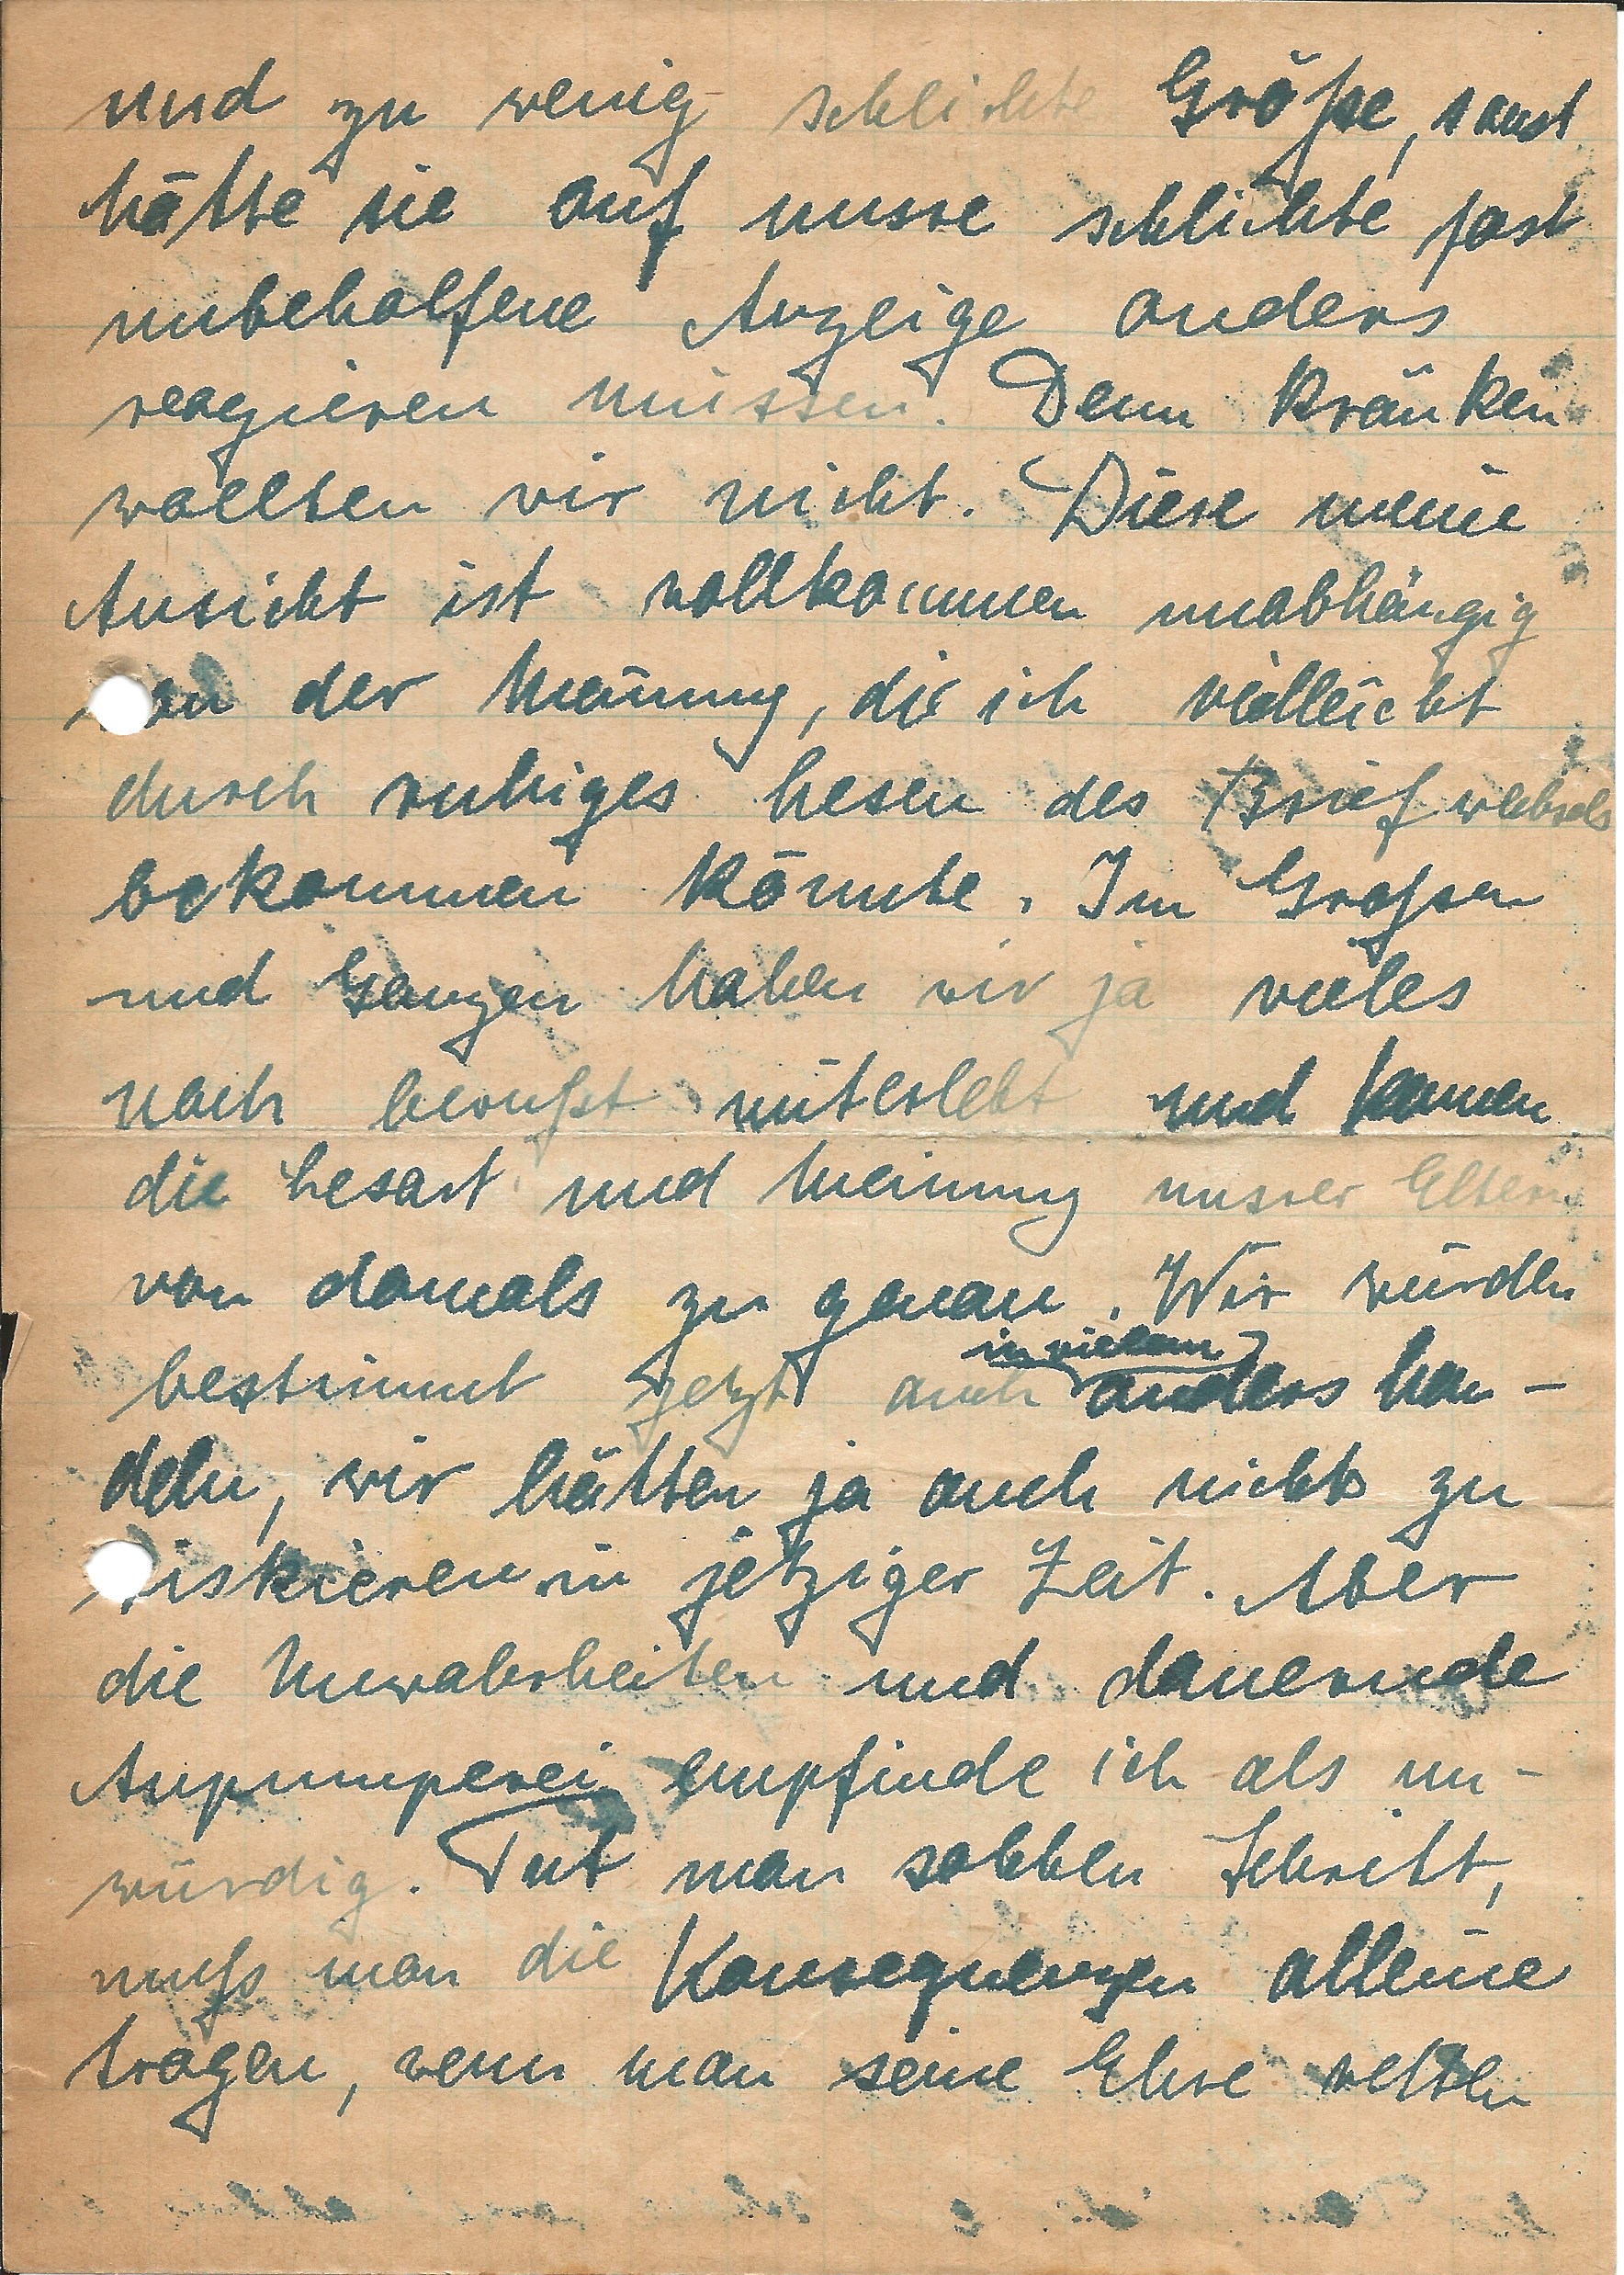 und zu wenig schlichte Größe, sonst
hätte sie auf unsre schlichte fast
unbeholfene Anzeige anders
reagieren müssen. Denn kränken
wollten wir nicht. Diese meine
Ansicht ist vollkommen unabhängig
von der Meinung, die ich vielleicht
durch ruhiges Lesen des Briefwechsels
bekommen könnte. Im Großen
und Ganzen haben wir ja vieles
noch bewußt miterlebt und kennen
die Lesart und Meinung unsrer Eltern
von damals zu genau. Wir würden
bestimmt jetzt auch in vielem anders han-
deln, wir hätten ja auch nichts zu
riskieren in jetziger Zeit. Aber
die Unwahrheiten und dauernde
Anpumperei empfinde ich als un-
würdig. Tut man solchen Schritt,
muß man die Konsequenzen alleine
tragen, wenn man seine Ehre retten